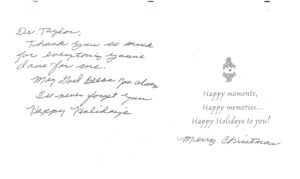 Dr Taylor,
Thank you so much
for everything you've
done for me.
May God bless you always
I'll never forget you
Happy Holidays
Happy moments,
Happy memories...
Happy Holidays to you!
Merry Christmas